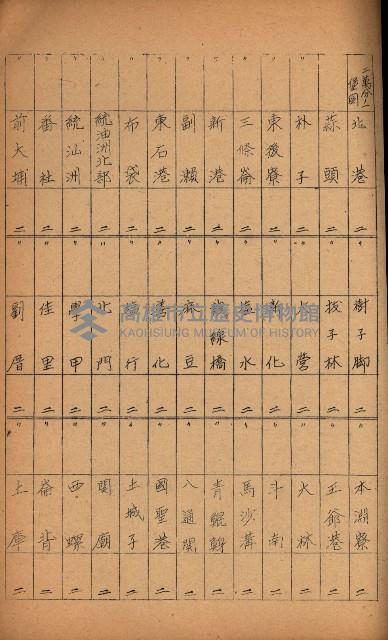 二萬分ノ一堡図 北港 二
〃 蒜頭 二
〃 朴子 二
〃 東後寮 二
〃 三條崙 二
〃 新港 二
〃 副瀬 二
〃 東石港 二
〃 布袋 二
〃 統汕洲北部 二
〃 統汕洲 二
〃 番社 二
〃 前大埔 二
〃 樹子脚 二
〃 拔子林 二
〃 營 二
〃 新化 二
〃 塩水 二
〃 線橋 二
〃 麻豆 二
〃 善化 二
〃 行 二
〃 北門 二
〃 學甲 二
〃 佳里 二
〃 劉厝 二
〃 水淵寮 二
〃 王爺港 二
〃 大林 二
〃 斗南 二
〃 馬沙溝 二
〃 青鯤鯓 二
〃 八通関 二
〃 國聖港 二
〃 土城子 二
〃 関廟 二
〃 西螺 二
〃 崙背 二
〃 土庫 二
高雄市立歷史博物館
KAOHSIUNG MUSEUM OF HISTORY